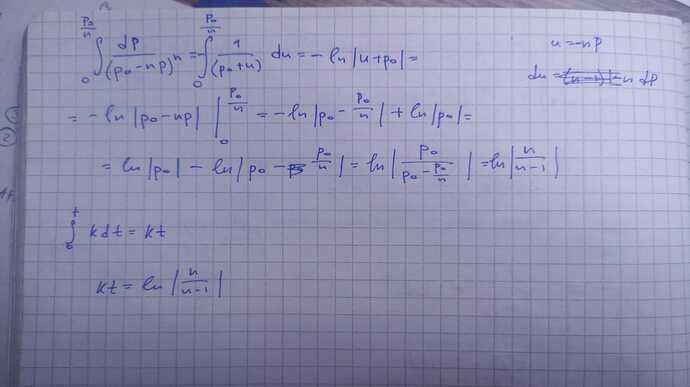 ∫₀^{p₀/n} dp/(p₀-np)ⁿ = ∫₀^{p₀/n} 1/(p₀+u) du = -ln|u+p₀| =
u=-np
du = -n dp
= -ln|p₀-np| |₀^{p₀/n} = -ln|p₀-p₀/n| + ln|p₀| =
= ln|p₀| - ln|p₀ - p₀/n| = ln|p₀/(p₀-p₀/n)| = ln|n/(n-1)|
∫₀^t kdt = kt
kt = ln|n/(n-1)|